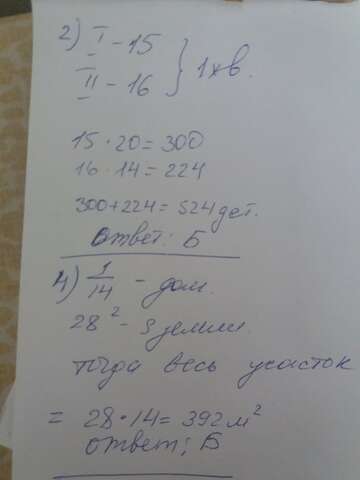 2) I - 15
II - 16 } 1 хв.
15 · 20 = 300
16 · 14 = 224
300 + 224 = 524 дет.
Ответ: Б
4) 1/14 - дом.
28² - S земли.
тогда весь участок
= 28 · 14 = 392 м²
ответ: Б